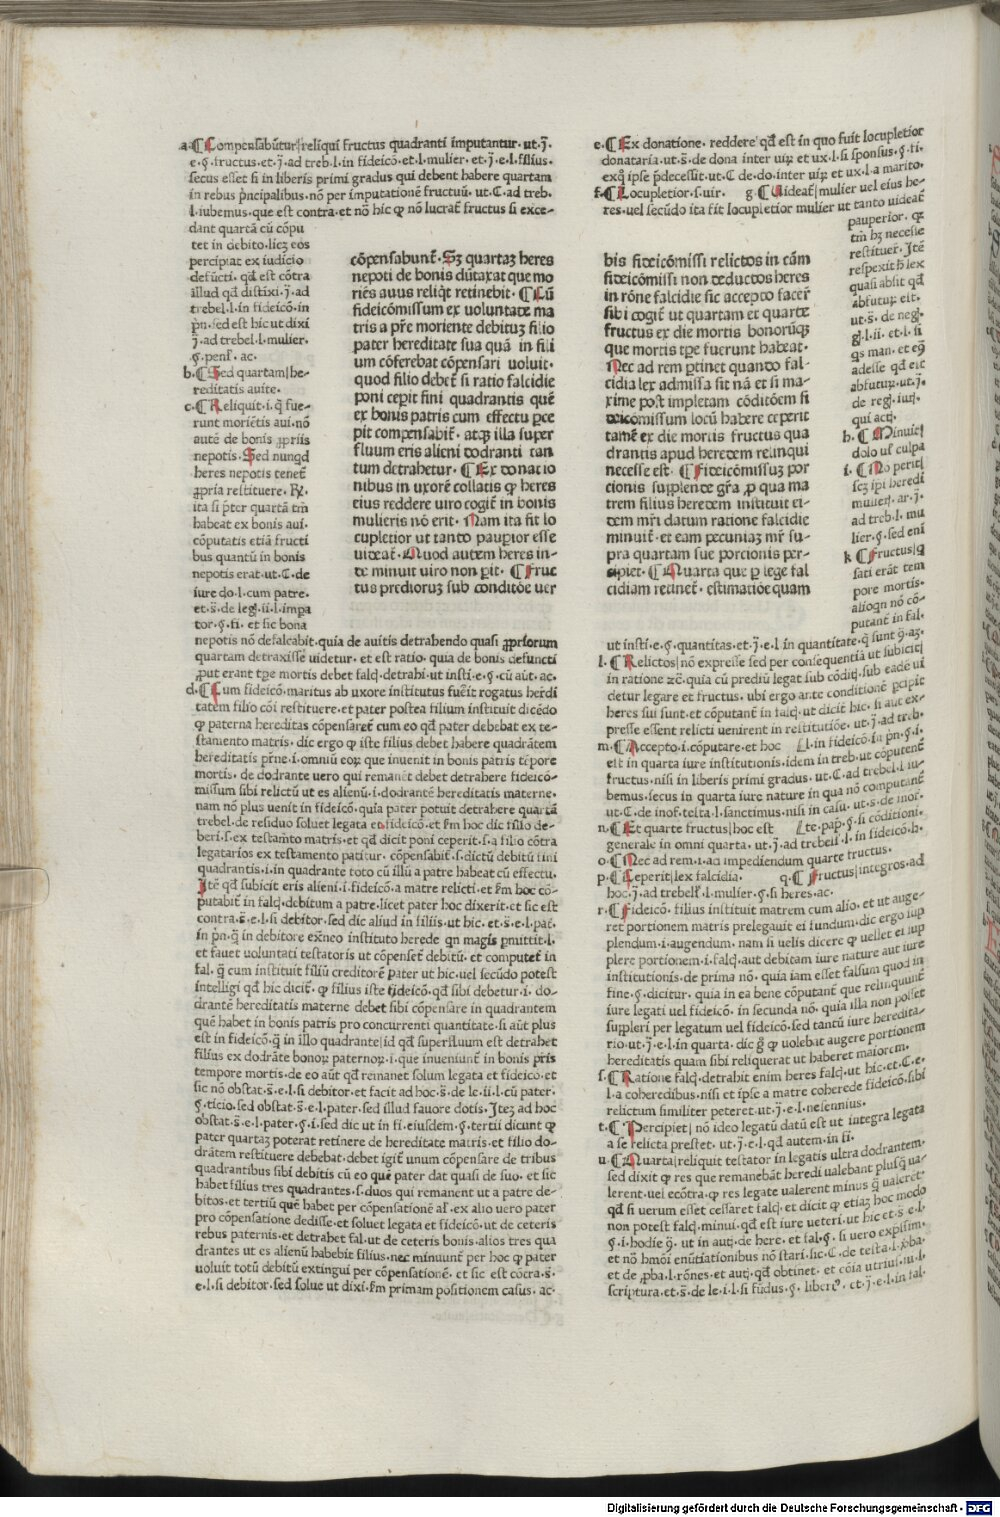 a. ¶ Compensabūtur|reliqui fructus quadranti imputantur. ut. j̄.
e. §. fructus. et. j̄. ad treb. l. in fideicō. et. l. mulier. et. j̄. e. l. filius.
secus esset si in liberis primi gradus qui debent habere quartam
in rebus p̄ncipalibus. nō per imputationē fructuū. ut. C. ad treb.
l. iubemus. que est contra. et nō hic ꝙ nō lucrat̄ fructus si exce-
dant quartā cū cōpu
tet in debito. licꝫ eos
percipiat ex iudicio
defūcti. qd̄ est cōtra
illud qd̄ distixi. j̄. ad
trebel. l. in fideicō. in
p̄n. sed est hic ut dixi
j̄. ad trebel. l. mulier.
§. penl̄. ac.
b. ¶ Sed quartam|he-
reditatis auite.
c. ¶ Reliquit. i. q̄ fue-
runt moriētis aui. nō
autē de bonis ꝓpriis
nepotis. Sed nunqd
heres nepotis tenet̄
ꝓpria restituere. R̄.
ita si p̄ter quartā tm̄
habeat ex bonis aui.
cōputatis etiā fructi
bus quantū in bonis
nepotis erat. ut. C. de
iure do. l. cum patre.
et. s̄. de leg. ii. l. impa
tor. §. fi. et sic bona
nepotis nō defalcabit. quia de auitis detrahendo quasi ꝓpriorum
quartam detraxisse uidetur. et est ratio. quia de bonis defuncti
ꝓut erant tꝑe mortis debet falcꝭ. detrahi. ut insti. e. §. cū aūt. ac.
d. ¶ Cum fideicō. maritus ab uxore institutus fuēit rogatus herdi
tatem filio cōi restituere. et pater postea filium instituit dicēdo
ꝙ paterna hereditas cōpensaret̄ cum eo qd̄ pater debebat ex te-
stamento matris. dic ergo ꝙ iste filius debet habere quadrātem
hereditatis pr̄ne. i. omniū eoꝝ que inuenit in bonis patris tēpore
mortis. de dodrante uero qui remanet debet detrahere fideicō-
missum sibi relictū ut es alienū. i. dodrantē hereditatis materne.
nam nō plus uenit in fideicō. quia pater potuit detrahere quartā
trebel. de residuo soluet legata et fideicō. et s̄m hoc dic filio de-
beri. s. ex testam̄to matris. et qd̄ dicit poni ceperit. s. a filio cōtra
legatarios ex testamento patitur. cōpensabit̄. s. dictū debitū fini
quadrantis. i. in quadrante toto cū illū a patre habeat cū effectu.
Itē qd̄ subicit eris alieni. i. fideicō. a matre relicti. et s̄m hoc cō-
putabit̄ in falcꝭ. debitum a patre. licet pater hoc dixerit. et sic est
contra. s̄. e. l. si debitor. sed dic aliud in filiis. ut hic. et. s̄. e. l. pat̄.
in p̄n. q̄ in debitore ex̄neo instituto herede qn magis ꝑmittit. l.
et fauet uoluntati testatoris ut cōpenset̄ debitū. et computet̄ in
fal. q̄ cum instituit filiū creditorē pater ut hic. uel secūdo potest
intelligi qd̄ hic dicit̄. ꝙ filius iste fideicō. qd̄ sibi debetur. i. do-
drantē hereditatis materne debet sibi cōpensare in quadrantem
quē habet in bonis patris pro concurrenti quantitate. si aūt plus
est in fideicō. q̄ in illo quadrante|id qd̄ superfluum est detrahet
filius ex dodrāte bonoꝝ paternoꝝ. i. que inueniunt̄ in bonis pr̄is
tempore mortis. de eo aūt qd̄ remanet solum legata et fideicō. et
sic nō obstat. s̄. e. l. si debitor. et facit ad hoc. s̄. de le. ii. l. cū pater.
§. ticio. sed obstat. s̄. e. l. pater. sed illud fauore dotis. Iteꝫ ad hoc
obstat. s̄. e. l. pater. §. i. sed dic ut in fi. eiusdem. §. tertii dicunt ꝙ
pater quartaꝫ poterat retinere de hereditate matris. et filio do-
drātem restituere debebat. debet igit̄ unum cōpensare de tribus
quadrantibus sibi debitis cū eo quē pater dat quasi de suo. et sic
habet filius tres quadrantes. s. duos qui remanent ut a patre de-
bitos. et tertiū quē habet per cōpensationē al̄. ex alio uero pater
pro cōpensatione dedisse. et soluet legata et fideicō. ut de ceteris
rebus paternis. et detrahet fal. ut de ceteris bonis. alios tres qua
drantes ut es alienū habebit filius. nec minuunt̄ per hoc ꝙ pater
uoluit totū debitū extingui per cōpensationē. et sic est cōtra. s̄.
e. l. si debitor. sed solue ut dixi. s̄m primam positionem casus. ac.
cōpensabunt̄. Sꝫ quartaꝫ heres
nepoti de bonis dūtaxat que mo
riēs auus reliq̄t retinebit. ¶ Cū
fideicōmissum ex uoluntate ma
tris a pr̄e moriente debituꝫ filio
pater hereditate sua quā in fili
um cōferebat cōpensari uoluit.
quod filio debet̄ si ratio falcidie
poni cepit fini quadrantis quē
ex bonis patris cum effectu ꝑce
pit compensabit̄. atqꝫ illa super
fluum eris alieni dodranti tan
tum detrahetur. ¶ Ex donatio
nibus in uxorē collatis ꝙ heres
eius reddere uiro cogit̄ in bonis
mulieris nō erit. Nam ita fit lo
cupletior ut tanto pauꝑior esse
uideat̄. Quod autem heres in-
te minuit uiro non ꝑit. ¶ Fruc
tus predioruꝫ sub conditōe uer
e. ¶ Ex donatione. reddere qd̄ est in quo fuit locupletior
donataria. ut. s̄. de dona inter uiꝝ et ux. l. si sponsus. §. fi.
exq̄ ipse p̄decessit. ut. C de. do. inter uiꝝ et ux. l. a marito.
f. ¶ Locupletior. s. uir. g. ¶ Uideat̄|mulier uel eius he-
res. uel secūdo ita fit locupletior mulier ut tanto uideat̄
pauperior. ꝙ
tm̄ hꝫ necesse
restituer̄. Itē
respexit h̄ lex
quasi absit qd̄
abfutuꝝ eit.
ut. s̄. de neg.
gl. l. ii. et. l. si
qs man. et eq̄
adesse qd̄ eit
abfutuꝝ. ut. j̄.
de reg. iuꝭ.
qui actꝭ.
h. ¶ Minuit|
dolo ul̄ culpa
i. ¶ No perit|
scꝫ ipi heredi
mulieꝭ. ar. j̄.
ad treb. l. mu
lier. §. sed eni
k ¶ Fructus|q
sati erāt tem
pore mortis.
alioqn nō cō-
putant̄ in fal.
bis fideicōmissi relictos in cām
fideicōmissi non deductos heres
in rōne falcidie sic accepto facer̄
sibi cogit̄ ut quartam et quarte
fructus ex die mortis bonoruꝫqꝫ
que mortis tꝑe fuerunt habeat.
Nec ad rem ꝑtinet quando fal-
cidia lex admissa sit nā et si ma-
xime post impletam cōditōem fi
deicōmissum locū habere ceperit
tamē ex die mortis fructus qua
drantis apud heredem relinqui
necesse est. ¶ Fideicōmissuꝫ por
cionis supplende gr̄a ꝓ qua ma
trem filius heredem instituit ei-
dem mr̄i datum ratione falcidie
minuit̄. et eam pecuniaꝫ mr̄ su-
pra quartam sue porcionis per-
cipiet. ¶ Quarta que ꝑ lege fal
cidiam retinet̄. estimatiōe quam
ut insti. e. §. quantitas. et. j̄. e. l in quantitate. q̄ sunt ꝯ. aꝫ.
l. ¶ Relictos|nō expresse sed per consequentiā ut subicit|
in ratione ⁊c̄. quia cū prediū legat̄ sub cōditꝭ. sub eadē ui
detur legare et fructus. ubi ergo ante conditionē ꝑcipit
heres sui sunt. et cōputant̄ in falcꝭ. ut dicit hic. si aut̄ ex-
presse essent relicti uenirent in restitutiōe. ut. j̄. ad treb.
m. ¶ Accepto. i. cōputare. et hoc l. in fideicō. in p̄n. §. i.
est in quarta iure institutionis. idem in treb. ut cōputent̄
fructus. nisi in liberis primi gradus. ut. C. ad trebel. l iu-
bemus. secus in quarta iure nature in qua nō computant̄
ut. C. de inof. testa. l. sanctimus. nisi in casu. ut. s. de inof.
n. ¶ Et quarte fructus|hoc est te. pap. §. si conditioni.
generale in omni quarta. ut. j̄. ad trebell̄. l. in fideicō. h.
o. ¶ Nec ad rem. i. ad impediendum quarte fructus.
p. ¶ Ceperit|lex falcidia. q. ¶ Fructus|integros. ad
hoc. j̄. ad trebell̄. l. mulier. §. si heres. ac.
r. ¶ Fideicō. filius instituit matrem cum alio. et ut auge-
ret portionem matris prelegauit ei fundum. dic ergo sup
plendum. i. augendum. nam si uelis dicere ꝙ uellet ei sup
plere portionem. i. falcꝭ. aut debitam iure nature aut iure
institutionis. de prima nō. quia iam esset falsum quod in
fine. §. dicitur. quia in ea bene cōputant̄ que relinquunt̄
iure legati uel fideicō. in secunda nō. quia illa non posset
suppleri per legatum uel fideicō. sed tantū iure heredita-
rio. ut. j̄. e. l. in quarta. dic ḡ ꝙ uolebat augere portionem
hereditatis quam sibi reliquerat ut haberet maiorem.
s. ¶ Ratione falcꝭ. detrahit enim heres falcꝭ. ut hic. et. C. e.
l. a coheredibus. nisi et ipse a matre coherede fideicō. sibi
relictum similiter peteret. ut. j̄. e. l. nesennius.
t. ¶ Percipiet|nō ideo legatū datū est ut integra legata
a se relicta prestet. ut. j̄. e. l. qd̄ autem. in fi.
u. ¶ Quarta|reliquit testator in legatis ultra dodrantem.
sed dixit ꝙ res que remanebāt heredi ualebant plusq̄ ua-
lerent. uel ecōtra. ꝙ res legate ualerent minus q̄ ualeret̄.
qd̄ si uerum esset cessaret falcꝭ. et dicit ꝙ etiaꝫ hoc modo
non potest falcꝭ. minui. qd̄ est iure ueteri. ut hic et. s̄. e. l.
§. i. hodie ꝯ. ut in autꝭ. de here. et fal. §. si uero expisim.
et nō hmōi enūtiationibus nō stari. sic. C. de testa. l. ꝓba-
et de ꝓba. l. rōnes. et autꝭ. qd̄ obtinet. et cōia utriusꝭ. iu. l.
scriptura. et. s̄. de le. i. l. si fūdus. §. liberꝰ. et. j̄. e. l. in fal.
Digitalisierung gefördert durch die Deutsche Forschungsgemeinschaft - DFG